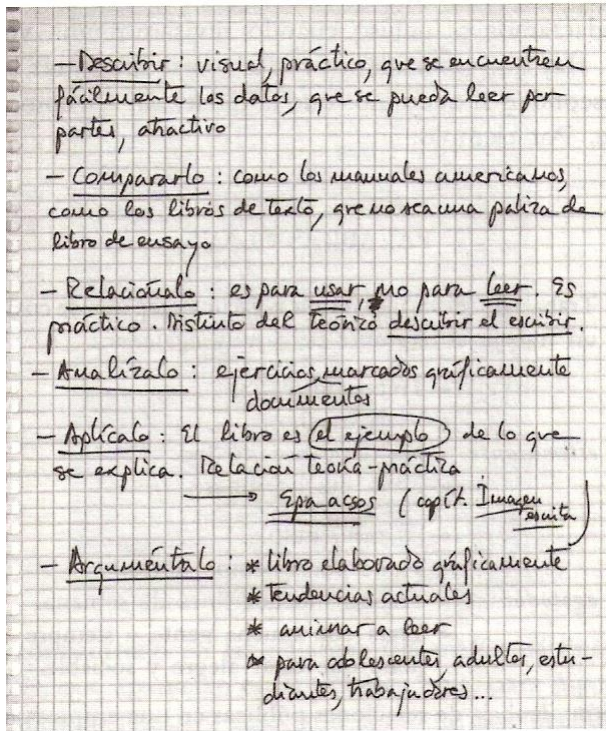 - Describir: visual, práctico, que se encuentren
fácilmente los datos, que se pueda leer por
partes, atractivo
- Compararlo: como los manuales americanos,
como los libros de texto, que no sea una paliza de
libro de ensayo
- Relaciónalo: es para usar, no para leer. Es
práctico. Distinto del teórico describir el escribir.
- Analízalo: ejercicios, marcados gráficamente
documentos
- Aplícalo: El libro es el ejemplo de lo que
se explica. Relación teoría-práctica
→ (capít. Imagen
escrita
- Arguméntalo: * libro elaborado gráficamente
* tendencias actuales
* animar a leer
* para adolescentes, adultos, estu-
diantes, trabajadores...